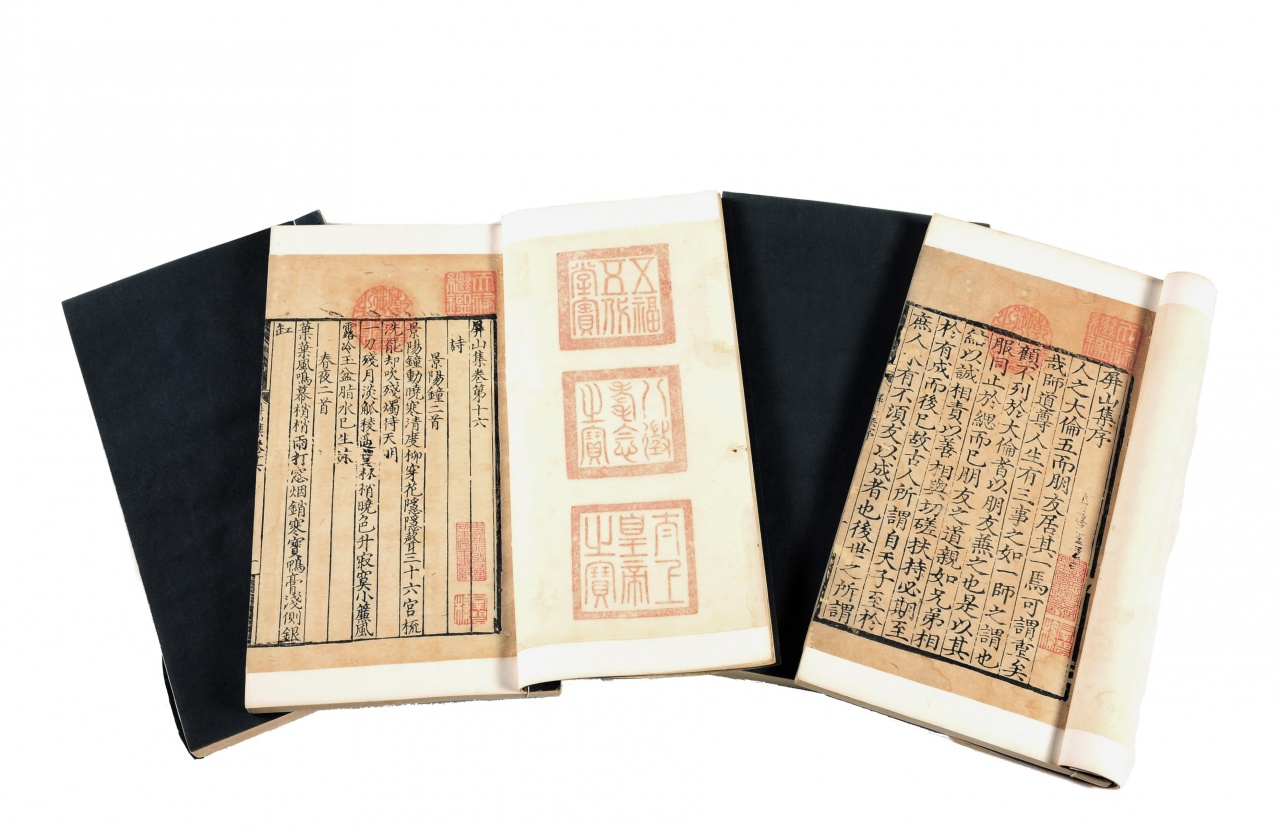 天祿繼鑑
屏山集序
人之大倫五而朋友居其一焉可謂重矣
哉師道尊人生有三事之如一師之謂也
顧不列於大倫者以朋友兼之也是以其
服同止於緦而已朋友之道親如兄弟相
給以誠相責以善相與切磋扶持必期至
於有成而後已故古人所謂自天子至於
庶人有不須友以成者也後世之所謂
五福五代堂寶
八徵耄念之寶
太上皇帝之寶
天祿繼鑑
屏山集卷第十六
詩
景陽鐘二首
景陽鐘動曉寒清度柳穿花隱隱聲三十六宮梳
洗罷却吹殘燭待天明
一刀殘月淡觚稜過盡林梢曉色升寂寞小簾風
露冷玉盆脂水已生冰
春夜二首
葉葉風鳴幕梢梢雨打窓烟銷寒寶鴨膏淺側銀
缸